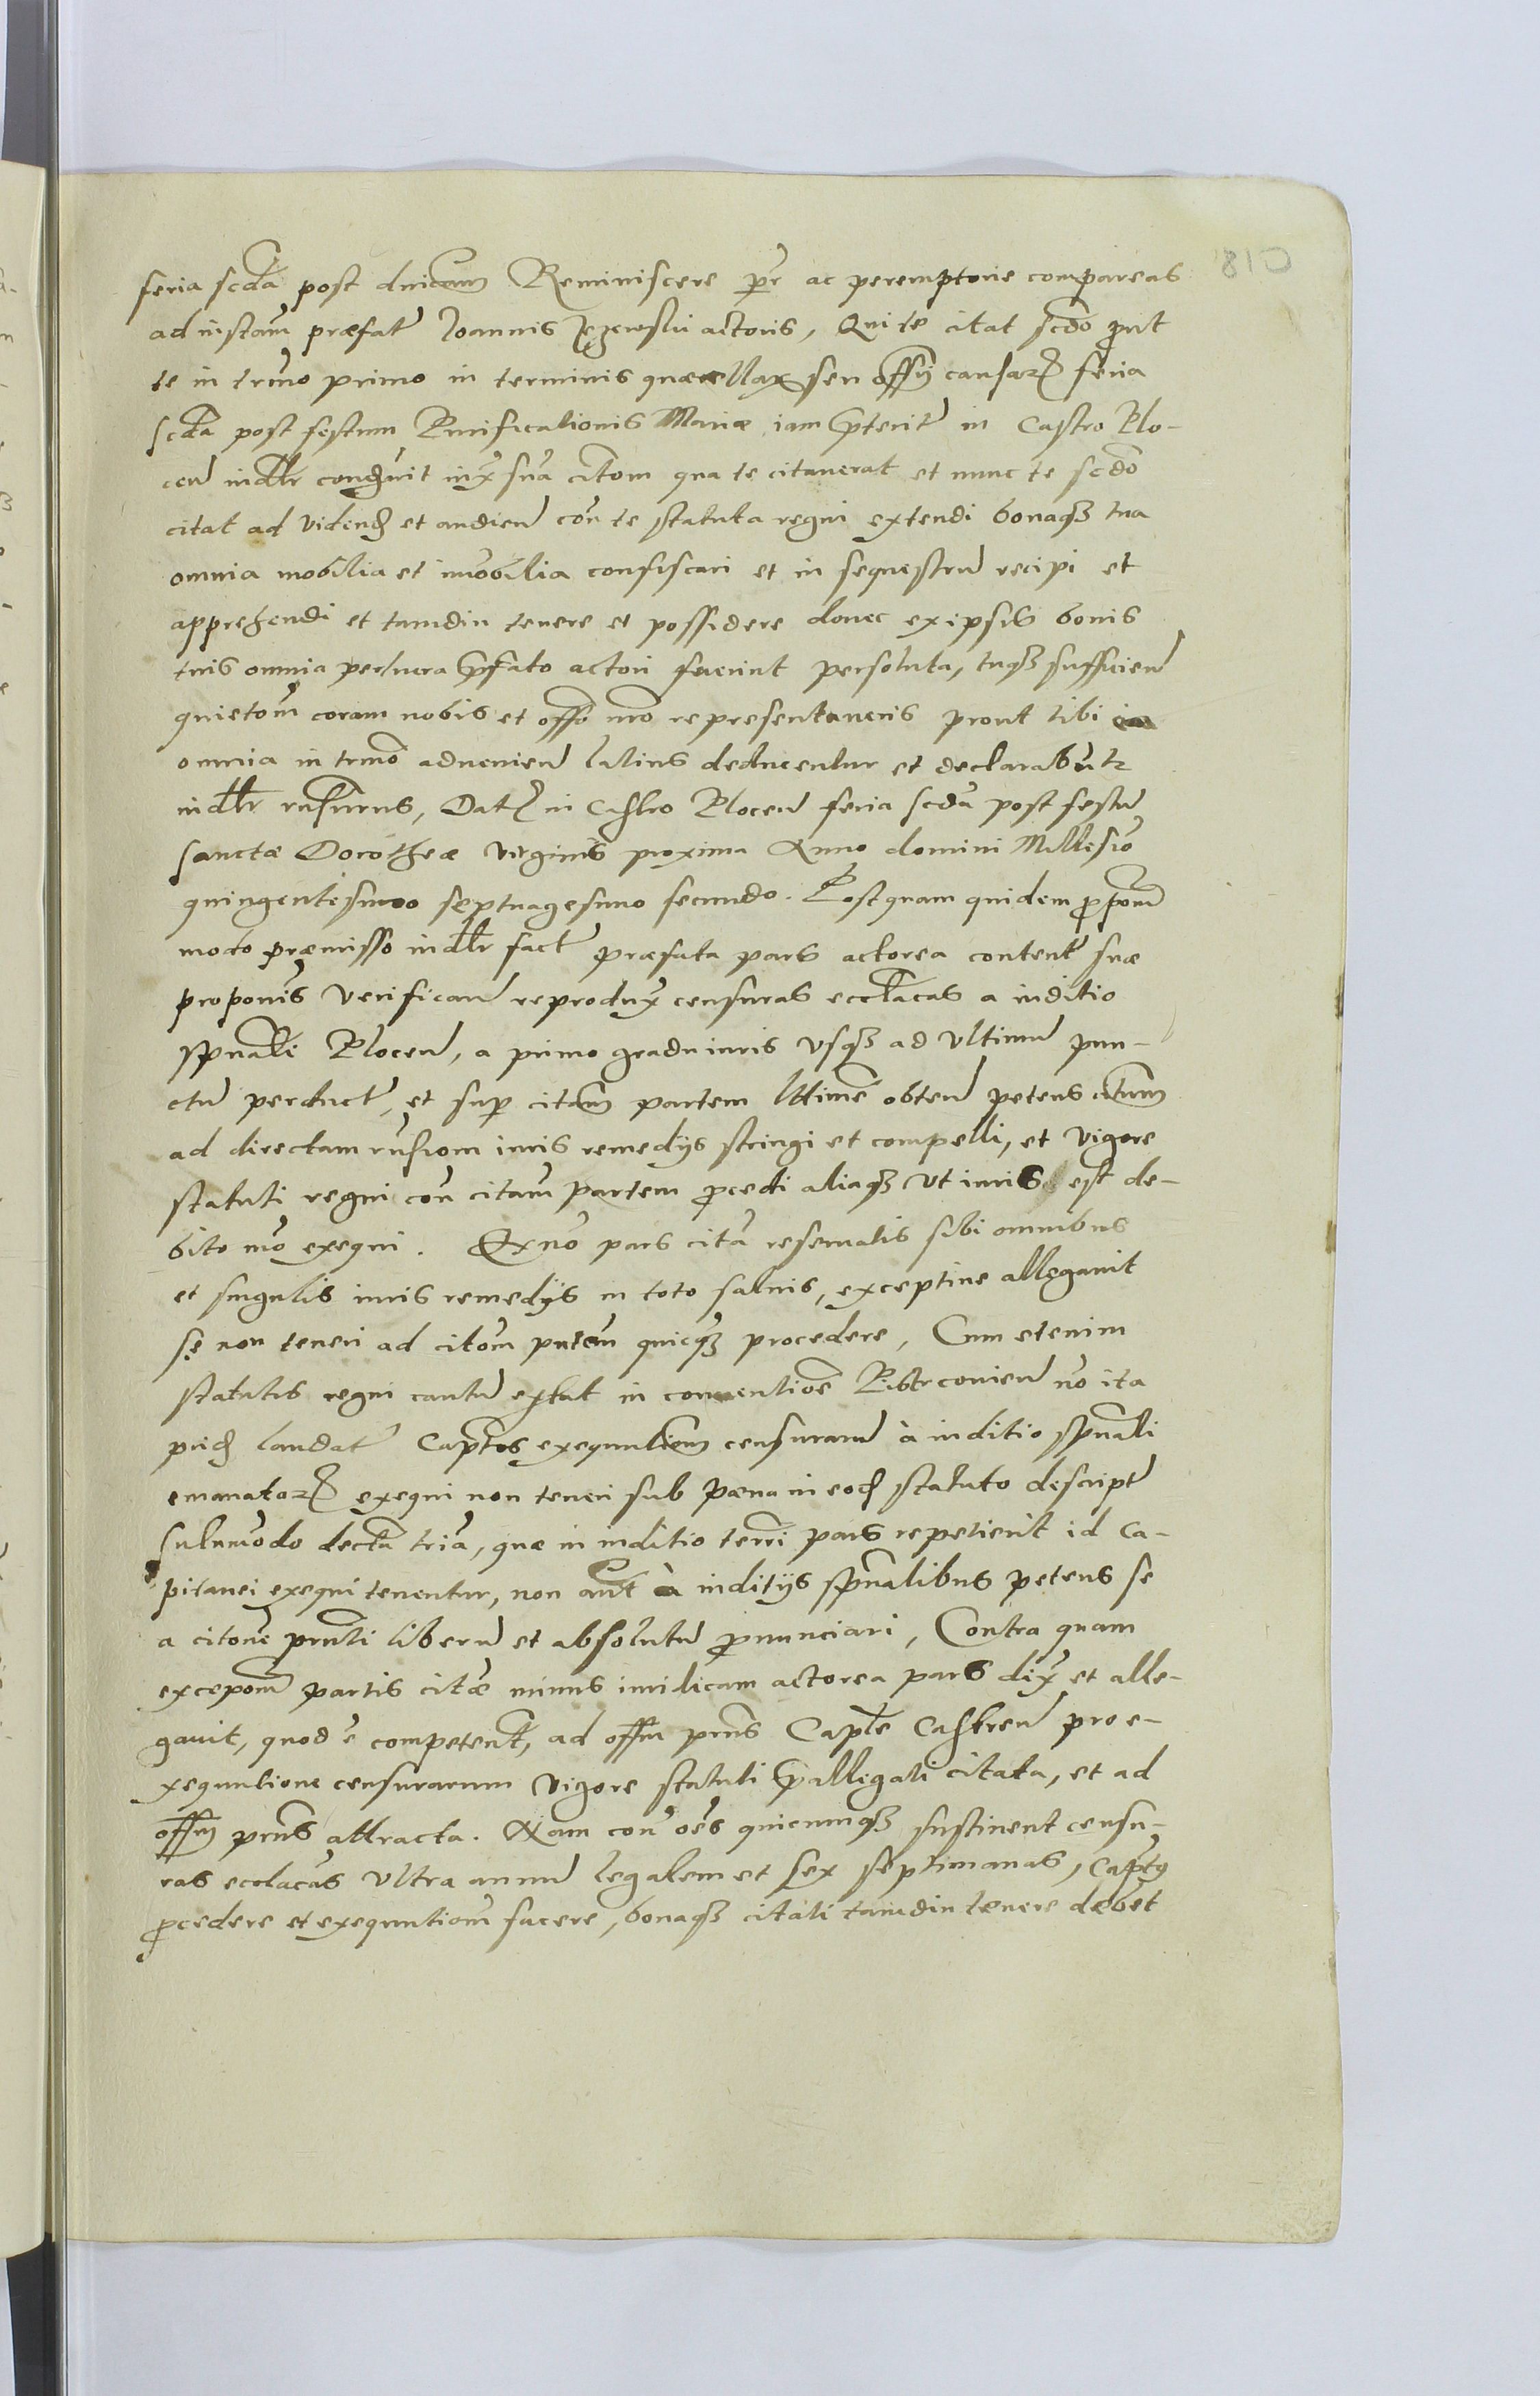 810
feria scda post dnicam Reminiscere pr ac peremptorie compareas
ad instam præfat Ioannis Jezewski actoris, Qui te citat scdo put
te in trmo primo in terminis quærellar seu offy causar feria
scda post festum Purificationis Mariæ iam pterit in Castro Plo-
cen indllr condvit iux sua citom qua te citaverat et nunc te scdo
citat ad videnđ et audien con te statuta regni extendi bonaq3 tua
omnia mobilia et imobilia confiscari et in sequestru recipi et
apprehendi et tamdiu tenere et possidere donec ex ipsis bonis
tuis omnia per puera pfato actori fuerint persoluta, tuq3 sufficien
quietom coram nobis et offo nro representaveris prout tibi
omnia in trmo advenien latius deducentur et declarabutr
indllr rnsurus, Dat in Castro Plocen feria scda post festu
sanctæ Dorotheæ virginis proxima Anno domini Millesio
quingentesimo septuagesimo secundo. Postquam quidem pponem
modo præmisso indllr fact præfata pars actorea content suæ
proponis verifican reprodux censuras eccllacas a iuditio
spuali Plocen, a primo gradu iuris vsq3 ad vltimu pun-
ctu perduct, et sup citam partem lttime obten petens citum
ad directam rnsiom iuris remedijs stringi et compelli, et vigore
statuti regni con citam partem pcedi aliaq3 vt iuris est de-
bito mo exequi. Ex no pars cita reservatis sibi omnibus
et singulis iuris remedijs in toto salvis, exceptive allegavit
se non teneri ad citom pntem quicq3 procedere, Cum etenim
statutis regni cautu extat in conventioe Piotrcovien no ita
pridem laudat Captos exequutiom censuraru à iuditio spuali
emanator exequi non teneri sub pæna in eod statuto descript
solummodo decta tria, quæ in iuditio terri pars repetierit id Ca-
pitanei exequi tenentur, non aut à iuditijs spualibus petens se
a citone pnti liberu et absolutu pnunciari, Contra quam
excepom partis citæ minus iuridicam actorea pars dix et alle-
gavit, quod e competent, ad offm pns Caple Castren pro e-
xequutione censurarum vigore statuti pallegati citata, et ad
offm pns attracta. Nam con oes quicumq3 sustinent censu-
ras eccllacas vltra annu legalem et sex septimanas, Captus
pcedere et exequutiom facere, bonaq3 citati tamdiu tenere debet